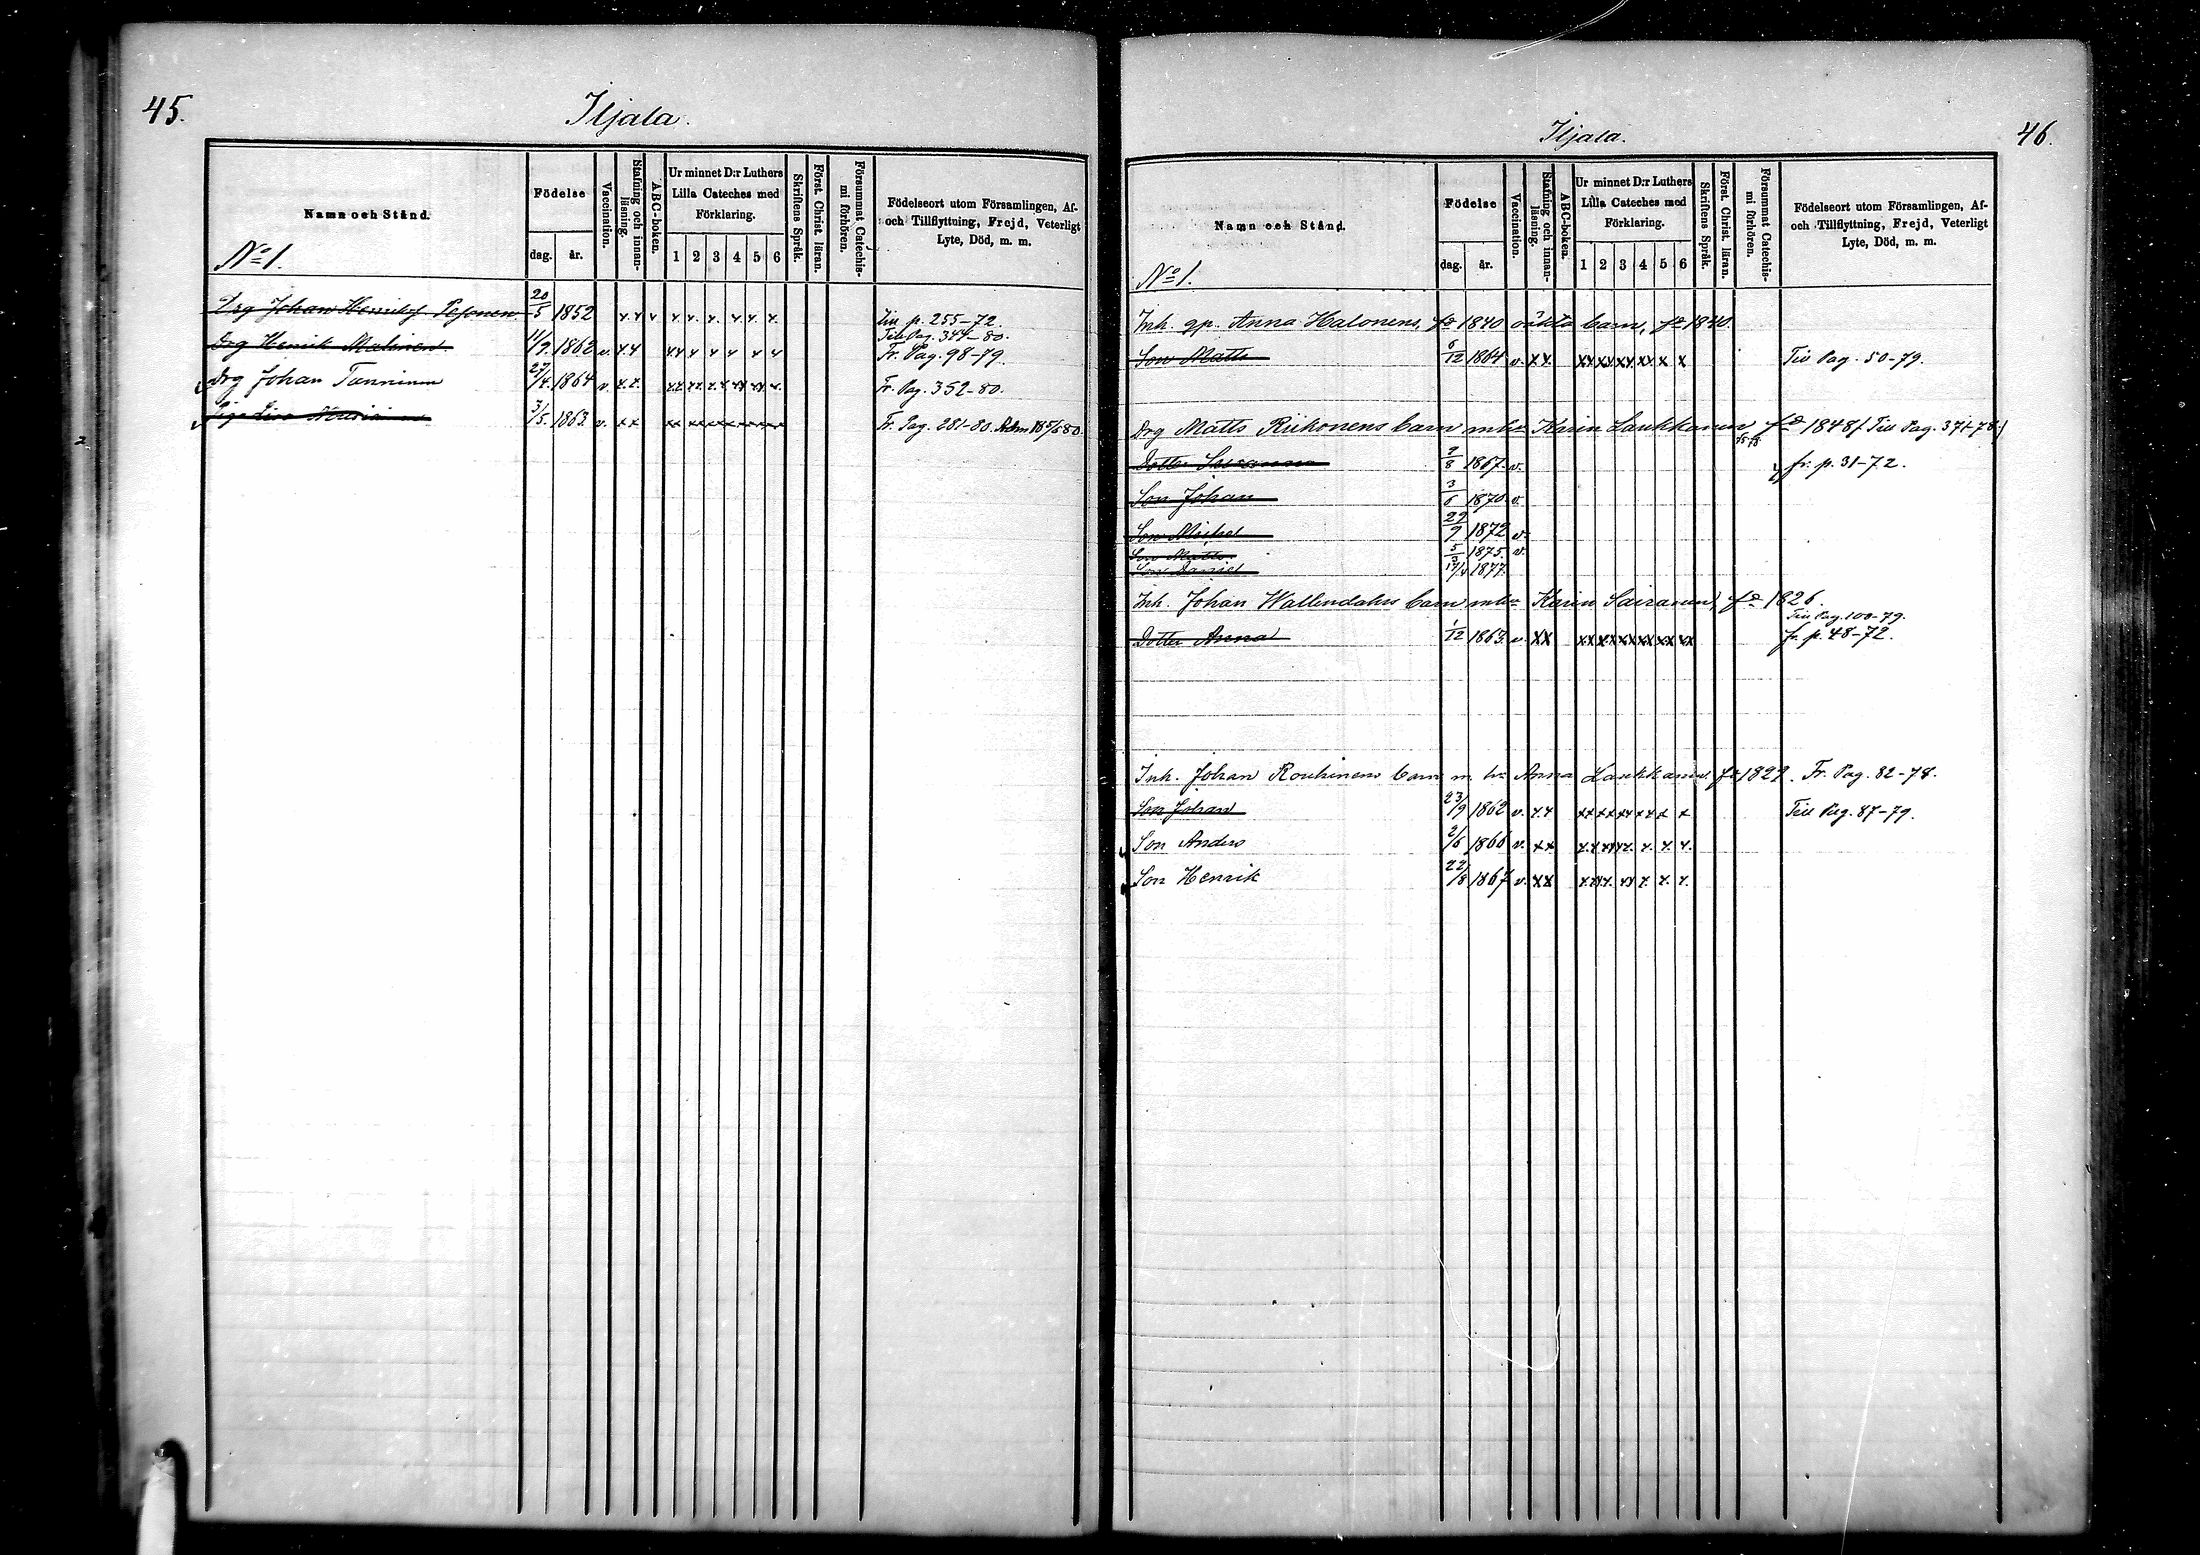 45.
Iljala.
Namn och Stånd.
Födelse
dag. år.
Vaccination.
Stafning och innan-läsning.
ABC-boken.
Ur minnet D:r Luthers Lilla Cateches med Förklaring.
1 2 3 4 5 6
Skriftens Språk.
Först. Christ. läran.
Försummat Catechis-mi förhören.
Födelseort utom Församlingen, Af- och Tillflyttning, Frejd, Veterligt Lyte, Död, m. m.
No 1.
Drg Johan Henriksf. Pesonen 20/5 1852 x x v x x. x. x. x. x. Till p. 255-72.
Till Pag. 344-80.
Drg Henrik Malinen 11/9. 1862 v. x x xx x x x x x Fr. Pag. 98-79.
Drg Johan Tanninen 27/4. 1864 v. x x. xx xx x x xx xx x. Fr. Pag. 352-80.
Piga 3/5. 1863. v. x x xx xx xx xx xx xx Fr. Pag. 281-80.
46.
Iljala.
Namn och Stånd.
Födelse
dag. år.
Vaccination.
Stafning och innan-läsning.
ABC-boken.
Ur minnet D:r Luthers Lilla Cateches med Förklaring.
1 2 3 4 5 6
Skriftens Språk.
Först. Christ. läran.
Försummat Catechis-mi förhören.
Födelseort utom Församlingen, Af- och Tillflyttning, Frejd, Veterligt Lyte, Död, m. m.
No 1.
Inh. qp. Anna Halonens, fd 1840 oäkta barn, fd 1840.
Son Matts 6/12 1864 v. xx xx xx xx xx x x Till Pag. 50-79.
Drg Matts Riikonens barn m hu Karin Laukkanen fd 1848 /. Till Pag. 371-78./
Dotter Susanna 9/8 1867. v. fr. p. 31-72.
Son Johan 3/6 1870. v.
Son Michel 29/9 1872 v.
Son Matts 5/3 1875. v.
Son Daniel 17/4 1877.
Inh. Johan Wallendahrs barn m hu Karin Sairanen, fd 1826.
Till Pag. 100-79.
Dotter Anna 1/12 1863. v. xx xx xx xx xx xx xx fr. p. 48-72.
Inh. Johan Rouhinens barn m. hu Anna Laukkanen fd 1829. Fr. Pag. 82-78.
Son Johan 23/9 1862 v. xx xx xx xx xx x x Till Pag. 87-79.
Son Anders 2/6 1866 v. xx x x x x x. x. x. x.
Son Henrik 22/8 1867 v. xx x xx. xx x. x. x.